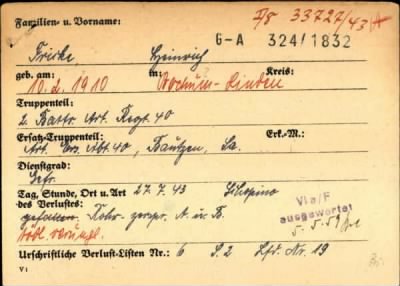 Familien- u. Vorname: I/8 33727/43
Fricke Heinrich G-A 324/1832
geb. am: in: Kreis:
10.2.1910 Bochum-Linden
Truppenteil:
2. Battr. Art. Regt. 40
Ersatz-Truppenteil: Erk.-M.:
Art. Ers. Abt. 40, Bautzen, Sa.
Dienstgrad:
Gefr.
Tag, Stunde, Ort u. Art 27.7.43
des Verlustes: VIa/F
gefallen. Rohr- zerspr. A. u. B. ausgewertet
tödl. verungl. 5.5.59
Urschriftliche Verlust-Listen Nr.: 6 S. 2 Lfd. Nr. 19
V: